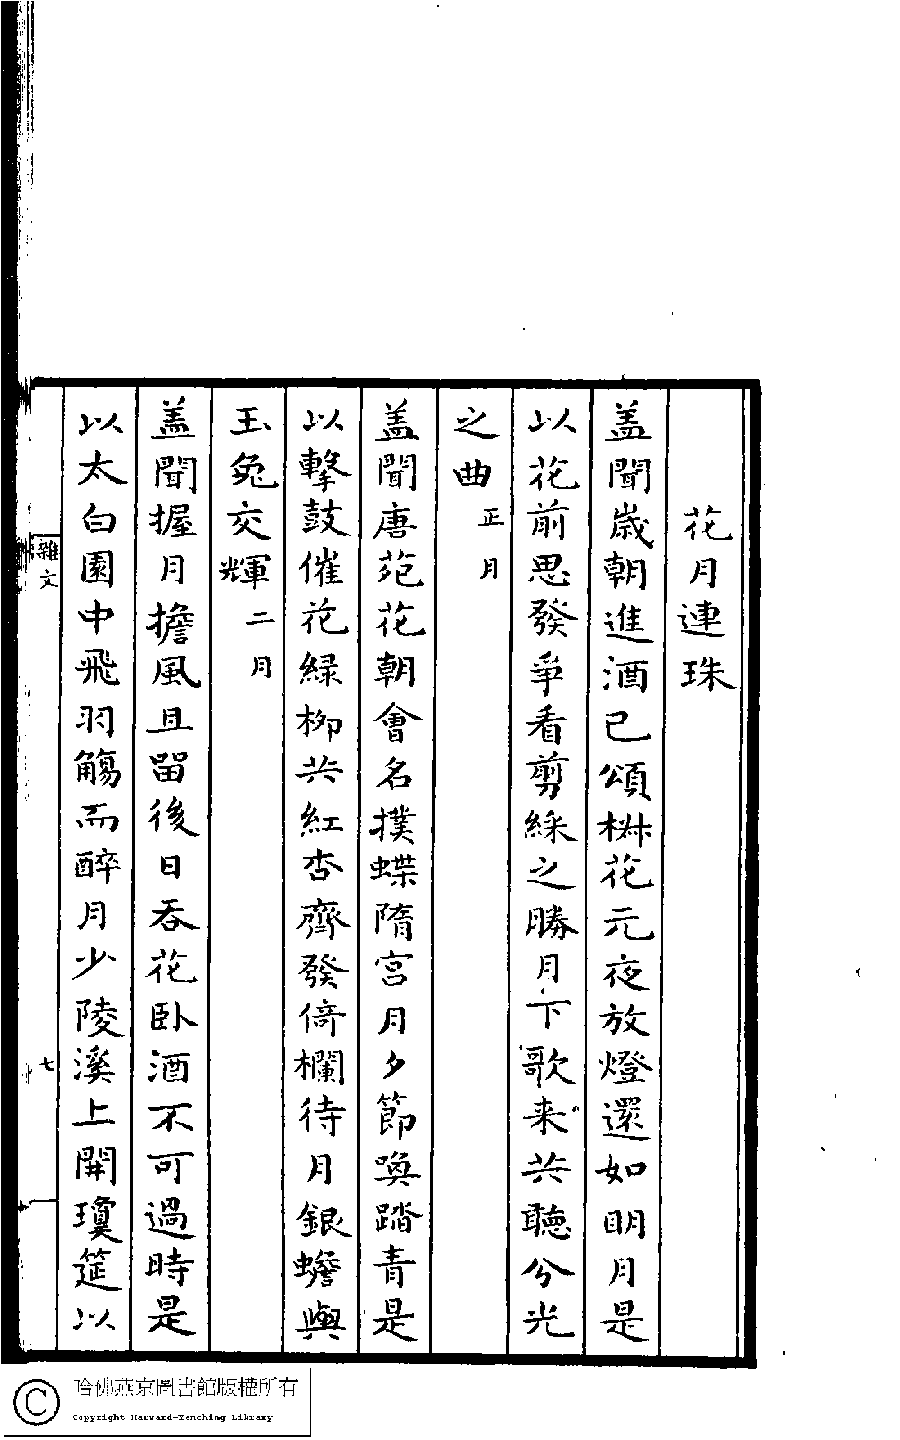 花月連珠
盖聞歲朝進酒已頌椒花元夜放燈還如明月是
以花前思發爭看剪綵之勝月下歌来共聽分光
之曲正月
盖聞唐苑花朝會名撲蝶隋宮月夕節喚踏青是
以擊鼓催花緑柳共紅杏齊發倚欄待月銀蟾與
玉兔交輝二月
盖聞握月擔風且留後日吞花卧酒不可過時是
以太白園中飛羽觴而醉月少陵溪上開瓊筵以
雜文
七
哈佛燕京圖書館版權所有
Copyright Harvard-Yenching Library